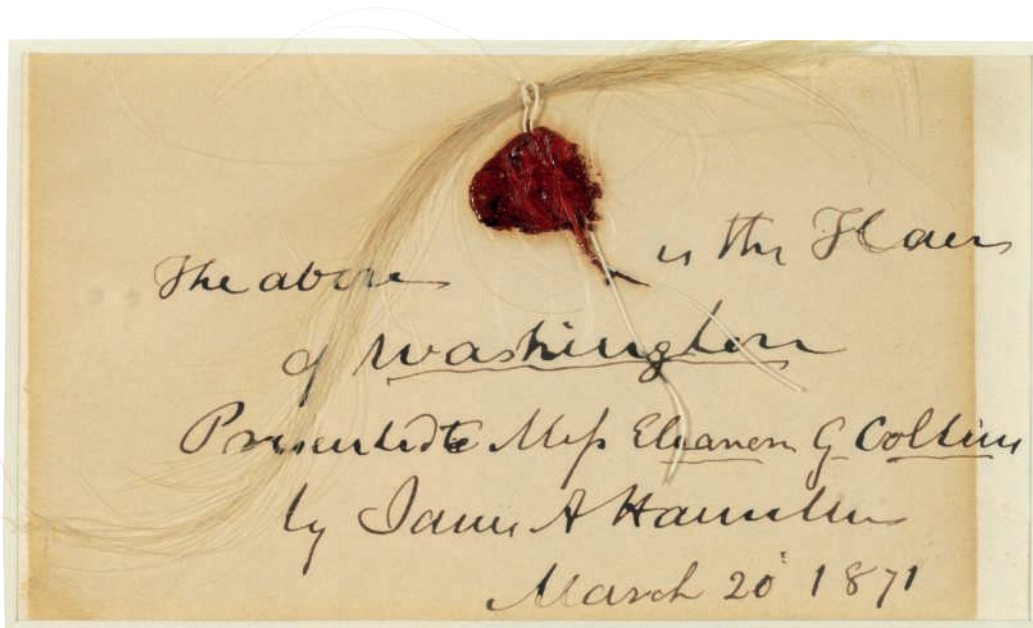 The above is the Hair
of Washington
Presented to Miss Eleanor G Collins
by James A Hamilton
March 20 1871